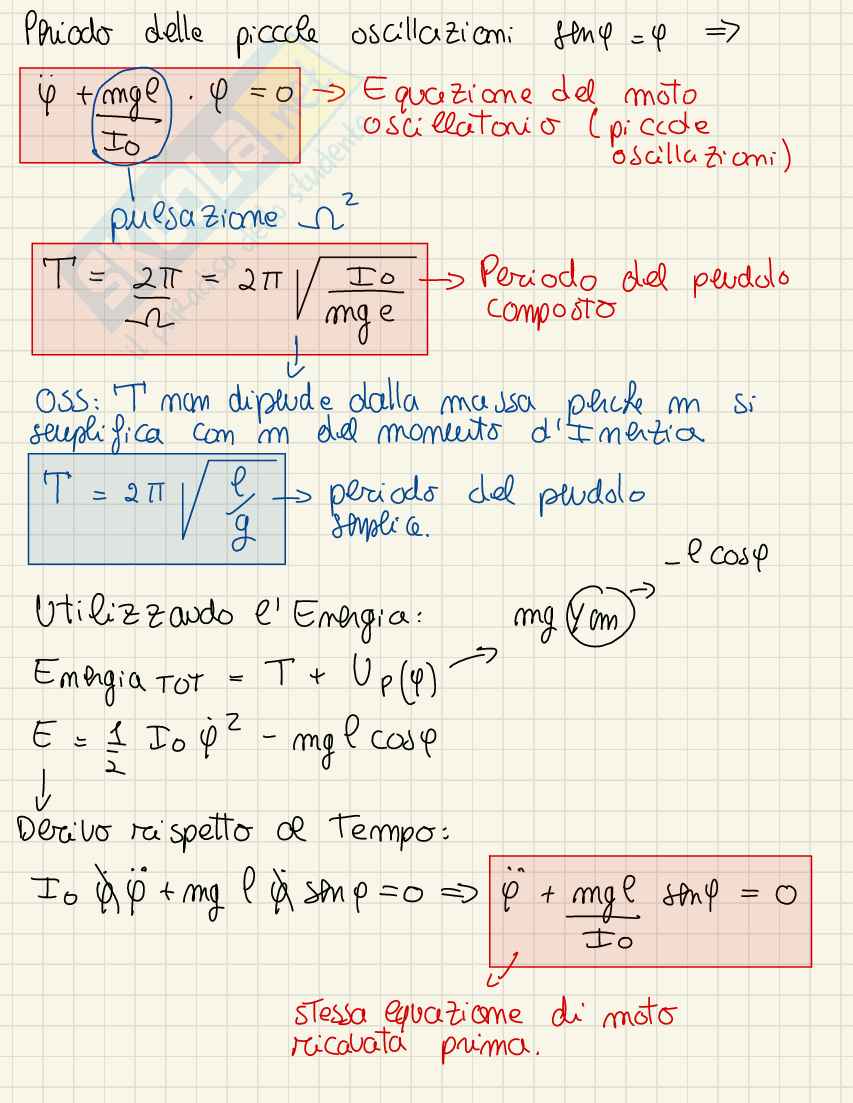 Periodo delle piccole oscillazioni senφ = φ ⇒
φ̈ + mgl/I₀ · φ = 0 → Equazione del moto
oscillatorio (piccole
oscillazioni)
pulsazione Ω²
T = 2π/Ω = 2π √(I₀/mgl) → Periodo del pendolo
composto
OSS: T non dipende dalla massa perche m si
semplifica con m del momento d'Inerzia
T = 2π √(l/g) → periodo del pendolo
semplice.
- l cosφ
Utilizzando l'Energia: mg Ycm →
Energia TOT = T + Up(φ)
E = 1/2 I₀ φ̇² - mg l cosφ
Derivo rispetto al Tempo:
I₀ φ̇ φ̈ + mg l φ̇ senφ = 0 ⇒ φ̈ + mgl/I₀ senφ = 0
stessa equazione di moto
ricavata prima.
SKUOLA.net
il paradiso dello studente